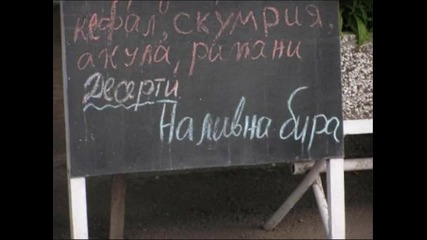 кефал, скумрия,
акула, рапани
Десерти
Наливна бира